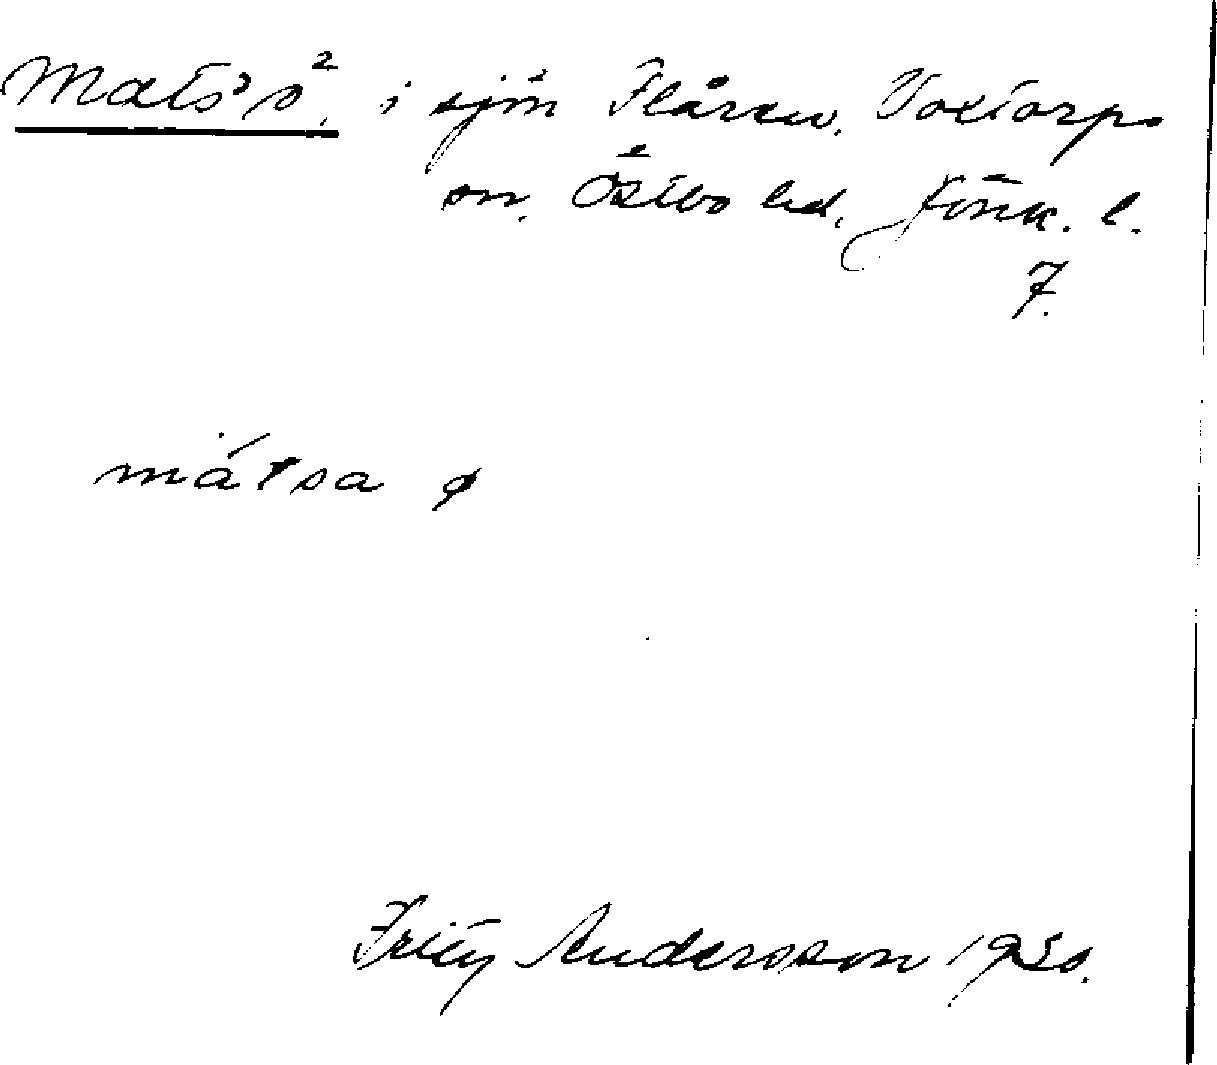 Mats's ö, i sjön Flåren, Voxtorps
sn. Östbo hd, Jönk. l.
7.
mátsa ø
Fritz Andersson 1930.